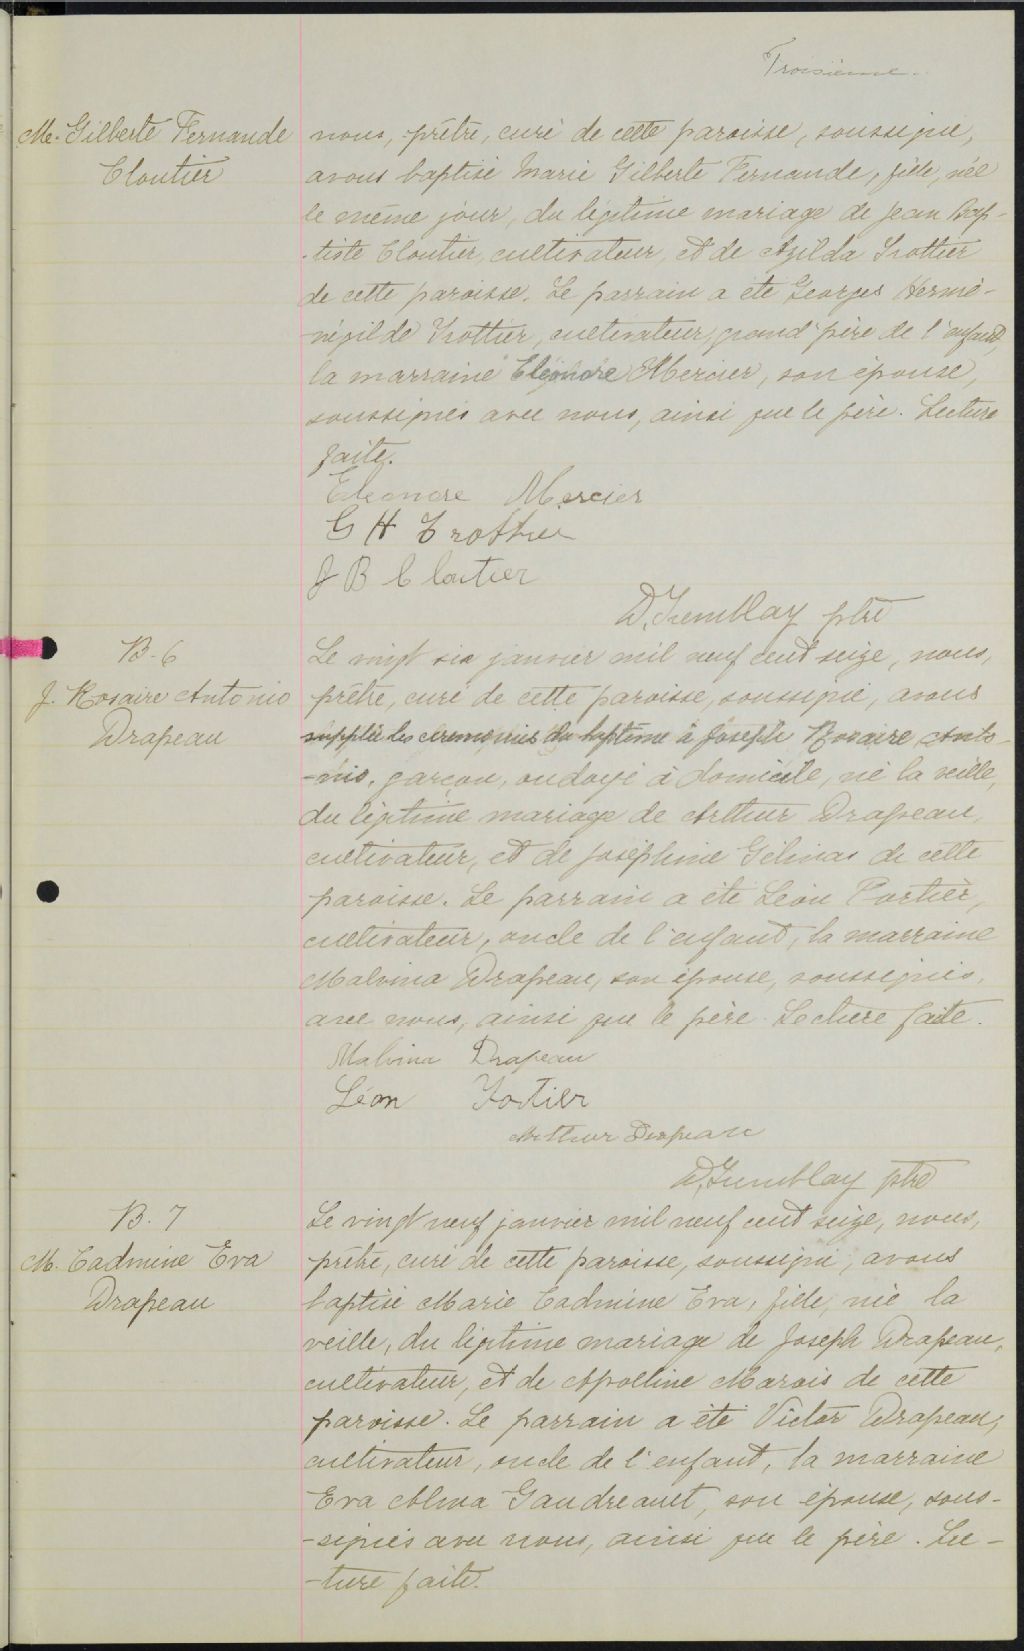 Troisième.
M. Gilberte Fernande
Cloutier
nous, prêtre, curé de cette paroisse, soussigné,
avons baptisé Marie Gilberte Fernande, fille, née
le même jour, du légitime mariage de Jean Bap-
-tiste Cloutier, cultivateur, et de Azilda Trottier
de cette paroisse. Le parrain a été Georges Hermé-
-négilde Trottier, cultivateur, grand'père de l'enfant,
la marraine Eléonore Mercier, son épouse,
soussignés avec nous, ainsi que le père. Lecture
faite.
Eleonore Mercier
G H Trottier
J B Cloutier
D. Tremblay ptre
B. 6
J. Rosaire Antonio
Drapeau
Le vingt six janvier mil neuf cent seize, nous,
prêtre, curé de cette paroisse, soussigné, avons
supplée les cérémonies du baptême à Joseph Rosaire Anto-
-nio, garçon, ondoyé à domicile, né la veille,
du légitime mariage de Arthur Drapeau,
cultivateur, et de Joséphine Gélinas de cette
paroisse. Le parrain a été Léon Fortier,
cultivateur, oncle de l'enfant, la marraine
Malvina Drapeau, son épouse, soussignés,
avec nous, ainsi que le père. Lecture faite.
Malvina Drapeau
Léon Fortier
Arthur Drapeau
D. Tremblay ptre
B. 7
M. Cadmine Eva
Drapeau
Le vingt neuf janvier mil neuf cent seize, nous,
prêtre, curé de cette paroisse, soussigné, avons
baptisé Marie Cadmine Eva, fille, née la
veille, du légitime mariage de Joseph Drapeau,
cultivateur, et de Apolline Marois de cette
paroisse. Le parrain a été Victor Drapeau,
cultivateur, oncle de l'enfant, la marraine
Eva Alma Gaudreault, son épouse, sous-
-signés avec nous, ainsi que le père. Lec-
-ture faite.